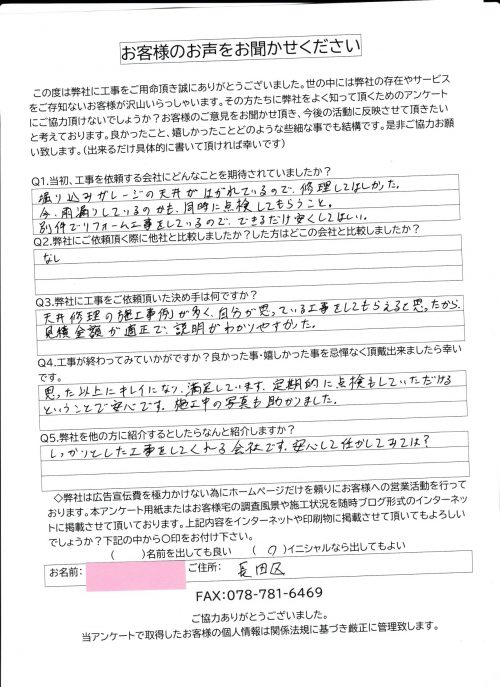 お客様のお声をお聞かせください
この度は弊社に工事をご用命頂き誠にありがとうございました。世の中には弊社の存在やサービス
をご存知ないお客様が沢山いらっしゃいます。その方たちに弊社をよく知って頂くためのアンケート
にご協力頂けないでしょうか？お客様のご意見をお聞かせ頂き、今後の活動に反映させて頂きたい
と考えております。良かったこと、嬉しかったことどのような些細な事でも結構です。是非ご協力お願
い致します。（出来るだけ具体的に書いて頂ければ幸いです）
Q1.当初、工事を依頼する会社にどんなことを期待されていましたか？
掘り込みガレージの天井がはがれているので、修理してほしかった。
今、雨漏りしているのかも、同時に点検してもらうこと。
別件でリフォーム工事をしているので、できるだけ安くしてほしい。
Q2.弊社にご依頼頂く際に他社と比較しましたか？した方はどこの会社と比較しましたか？
なし
Q3.弊社に工事をご依頼頂いた決め手は何ですか？
天井修理の施工事例が多く、自分が思っている工事をしてもらえると思ったから。
見積金額が適正で、説明がわかりやすかった。
Q4.工事が終わってみていかがですか？良かった事・嬉しかった事を忌憚なく頂戴出来ましたら幸い
です。
思った以上にキレイになり、満足しています。定期的に点検もしていただける
ということで安心です。施工中の写真も助かりました。
Q5.弊社を他の方に紹介するとしたらなんと紹介しますか？
しっかりとした工事をしてくれる会社です。安心して任かしてみては？
◇弊社は広告宣伝費を極力かけない為にホームページだけを頼りにお客様への営業活動を行って
おります。本アンケート用紙またはお客様宅の調査風景や施工状況を随時ブログ形式のインターネッ
トに掲載させて頂いております。上記内容をインターネットや印刷物に掲載させて頂いてもよろしい
でしょうか？下記の中から〇印をお付け下さい。
（　　）名前を出しても良い　（ ○ ）イニシャルなら出してもよい
お名前： ご住所： 長田区
FAX:078-781-6469
ご協力ありがとうございました。
当アンケートで取得したお客様の個人情報は関係法規に基づき厳正に管理致します。